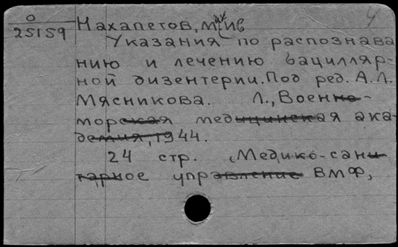 О
25159
Нахапетов, М. ИВ
Указания по распознава
нию и лечению бацилляр-
ной дизентерии. Под ред. А.Л.
Мясникова. Л., Военно-
морская медицинская ака-
демия, 1944.
24 стр. (Медико-сани-
тарное управление ВМФ,